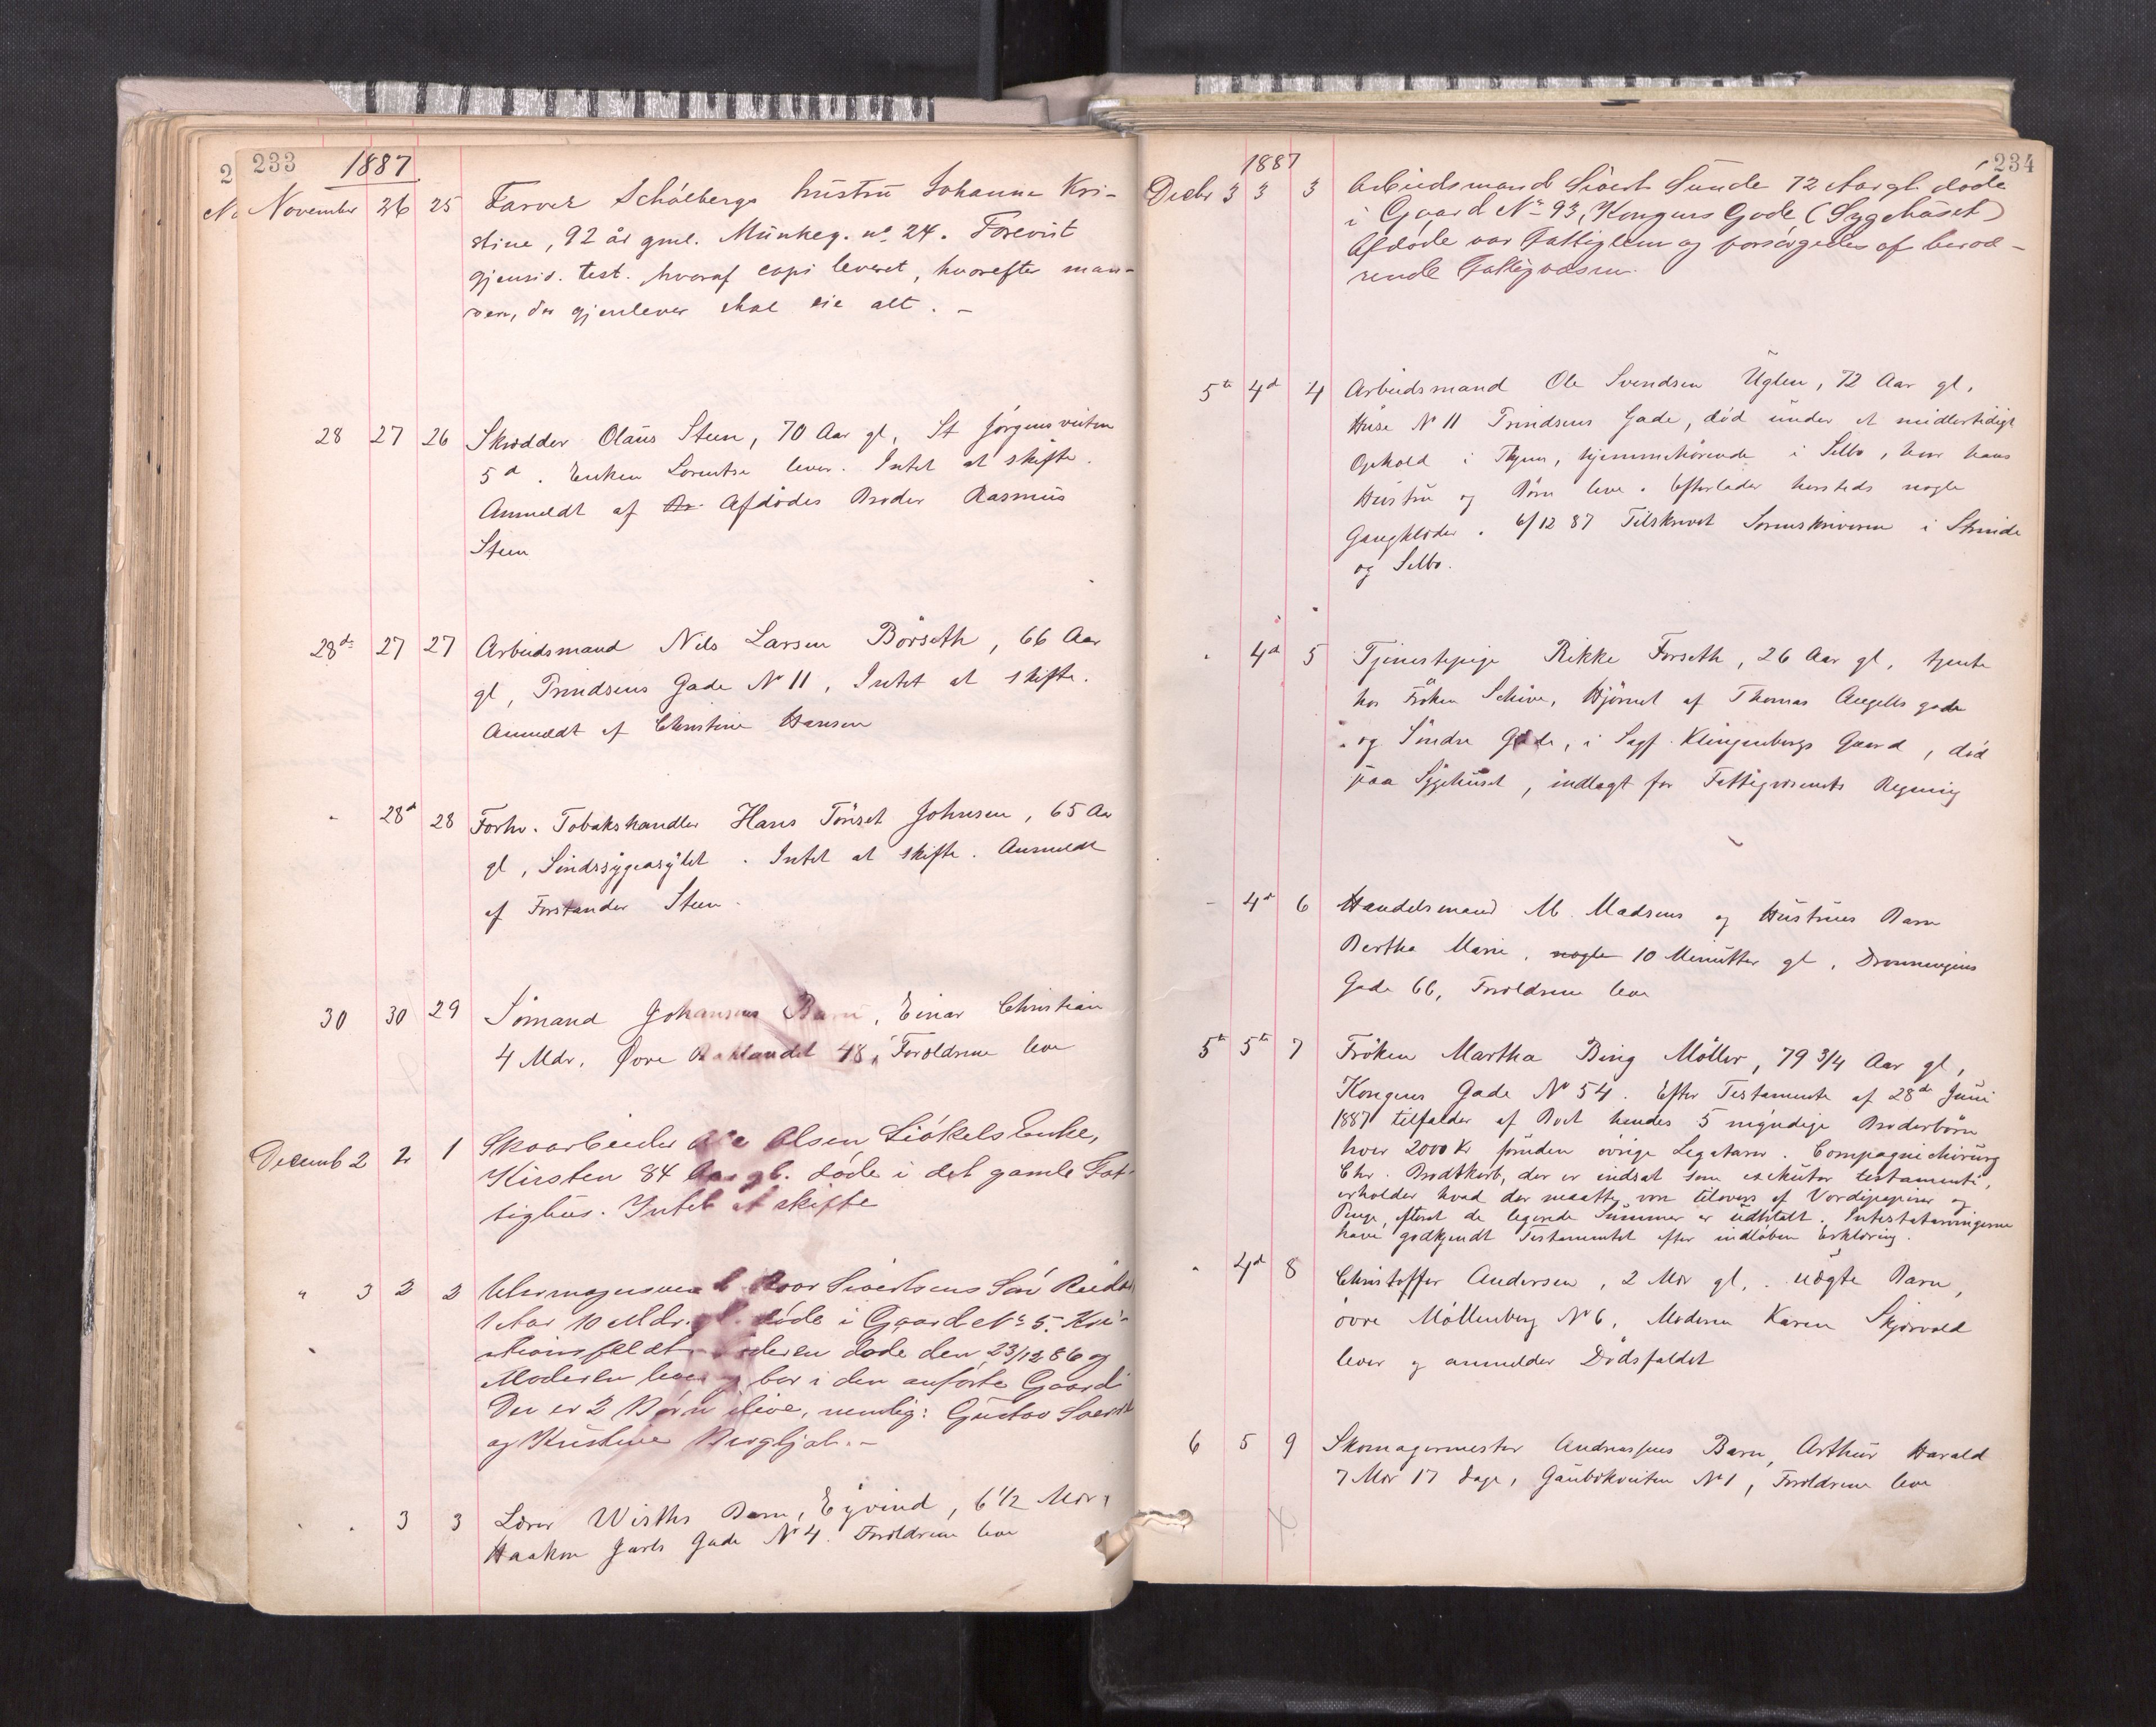 233 1887
November 26 25 Farver Schölbergs hustru Johanne Kri-
stine, 92 år gml. Munkeg. no 24. Forevist
gjensid. test. hvoraf copi leveret, hvorefter man-
den, der gjenlever skal eie alt. -
28 27 26 Skrædder Olaus Steen, 70 Aar gl, St Jörgensveiten
5 d. Enken Lorentse lever. Intet at skifte.
Anmeldt af Br. Afdødes Broder Rasmus
Steen
28de 27 27 Arbeidsmand Nils Larsen Börseth, 66 Aar
gl, Prindsens Gade No 11, Intet at skifte.
Anmeldt af Christine Hansen
" 28d 28 Forhv. Tobakshandler Hans Tönset Johnsen, 65 Aar
gl, Sindssygeasylet. Intet at skifte. Anmeldt
af Forstander Steen.
30 30 29 Sömand Johansens Barn, Einar Christian
4 Mdr, Øvre Baklandet 48, Forældrene leve
Decemb 2 2 1 Skoarbeider Ole Olsen Enke,
Kirsten 84 Aar gl. døde i det gamle Fat-
tighus. Intet at skifte
" 3 2 2 Uhrmagersvend Sivertsens Sön Reidar
1 Aar 10 Mdr. gl. døde i Gaard No 5. Kri-
stiansfeldt. Faderen døde den 23/12 86 og
Moderen lever og bor i den anførte Gaard
Der er 2 Børn ilive, nemlig: Gustav
og Kristine Bergljot. -
" " 3 3 Lærer Wisths Barn, Eyvind, 6 1/2 Mdr,
Haakon Jarls Gade No 4. Forældrene leve
1887 234
Decbr 3 3 3 Arbeidsmand Sivert Sunde 72 Aar gl. døde
i Gaard No 93, Kongens Gade, (Sygehuset)
Afdøde var Fattiglem og forsørgedes af hervæ-
rende Fattigvæsen.
5te 4d 4 Arbeidsmand Ole Svendsen Uglen, 72 Aar gl,
Huse No 11 Prindsens Gade, død under et midlertidigt
Ophold i Byen, hjemmehørende i Selbo, hvor hans
Hustru og Børn leve. Efterlader hersteds nogle
Gangklæder. 6/12 87 Tilskrevet Sorenskriveren i Strinde
og Selbo.
" 4d 5 Tjenestepige Rikke Forseth, 26 Aar gl, tjente
hos Fröken Schive, Hjörnet af Thomas Angells gade
og Söndre Gade, i Sagf. Klingenbergs Gaard, död
paa Sygehuset, indlagt for Fattigvæsenets Regning
- 4d 6 Handelsmand M. Madsens og Hustrues Barn
Bertha Marie, nogle 10 Minutter gl, Dronningens
Gade 66, Forældrene leve
5te 5te 7 Fröken Martha Bing Möller, 79 3/4 Aar gl,
Kongens Gade No 54. Efter Testamente af 28de Juni
1887 tilfalder af Boet hendes 5 myndige Broderbörn
hver 2000 Kr foruden övrige Legatarer. Compagnichirurg
Chr. Brodtkorb, der er indsat som exekutor testamenti,
erholder hvad der maatte være tilovers af Værdipapirer og
Penge, efterat de legerede Summer er udbetalt. Intestatarvingerne
have godkjendt Testamentet efter indløben Erklæring.
" 4d 8 Christoffer Andersen, 2 Mdr gl, uægte Barn,
övre Möllenberg No 6, Moderen Karen Skjærvold
lever og anmelder Dödsfaldet
6 5 9 Skomagermester Andreassens Barn, Arthur Harald
7 Mdr 17 Dage, Gaubækveiten No 1, Forældrene leve